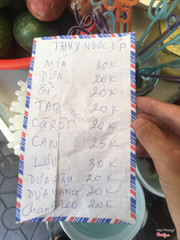 THUY NƯỚC ÉP
MÍA 10K
DỨA 20K
ỔI 20K
TÁO 20K
CÀ RỐT 20K
CAM 25K
LỰU 30K
DƯA HẤU 20K
DƯA VÀNG 20K
Chanh leo 20K